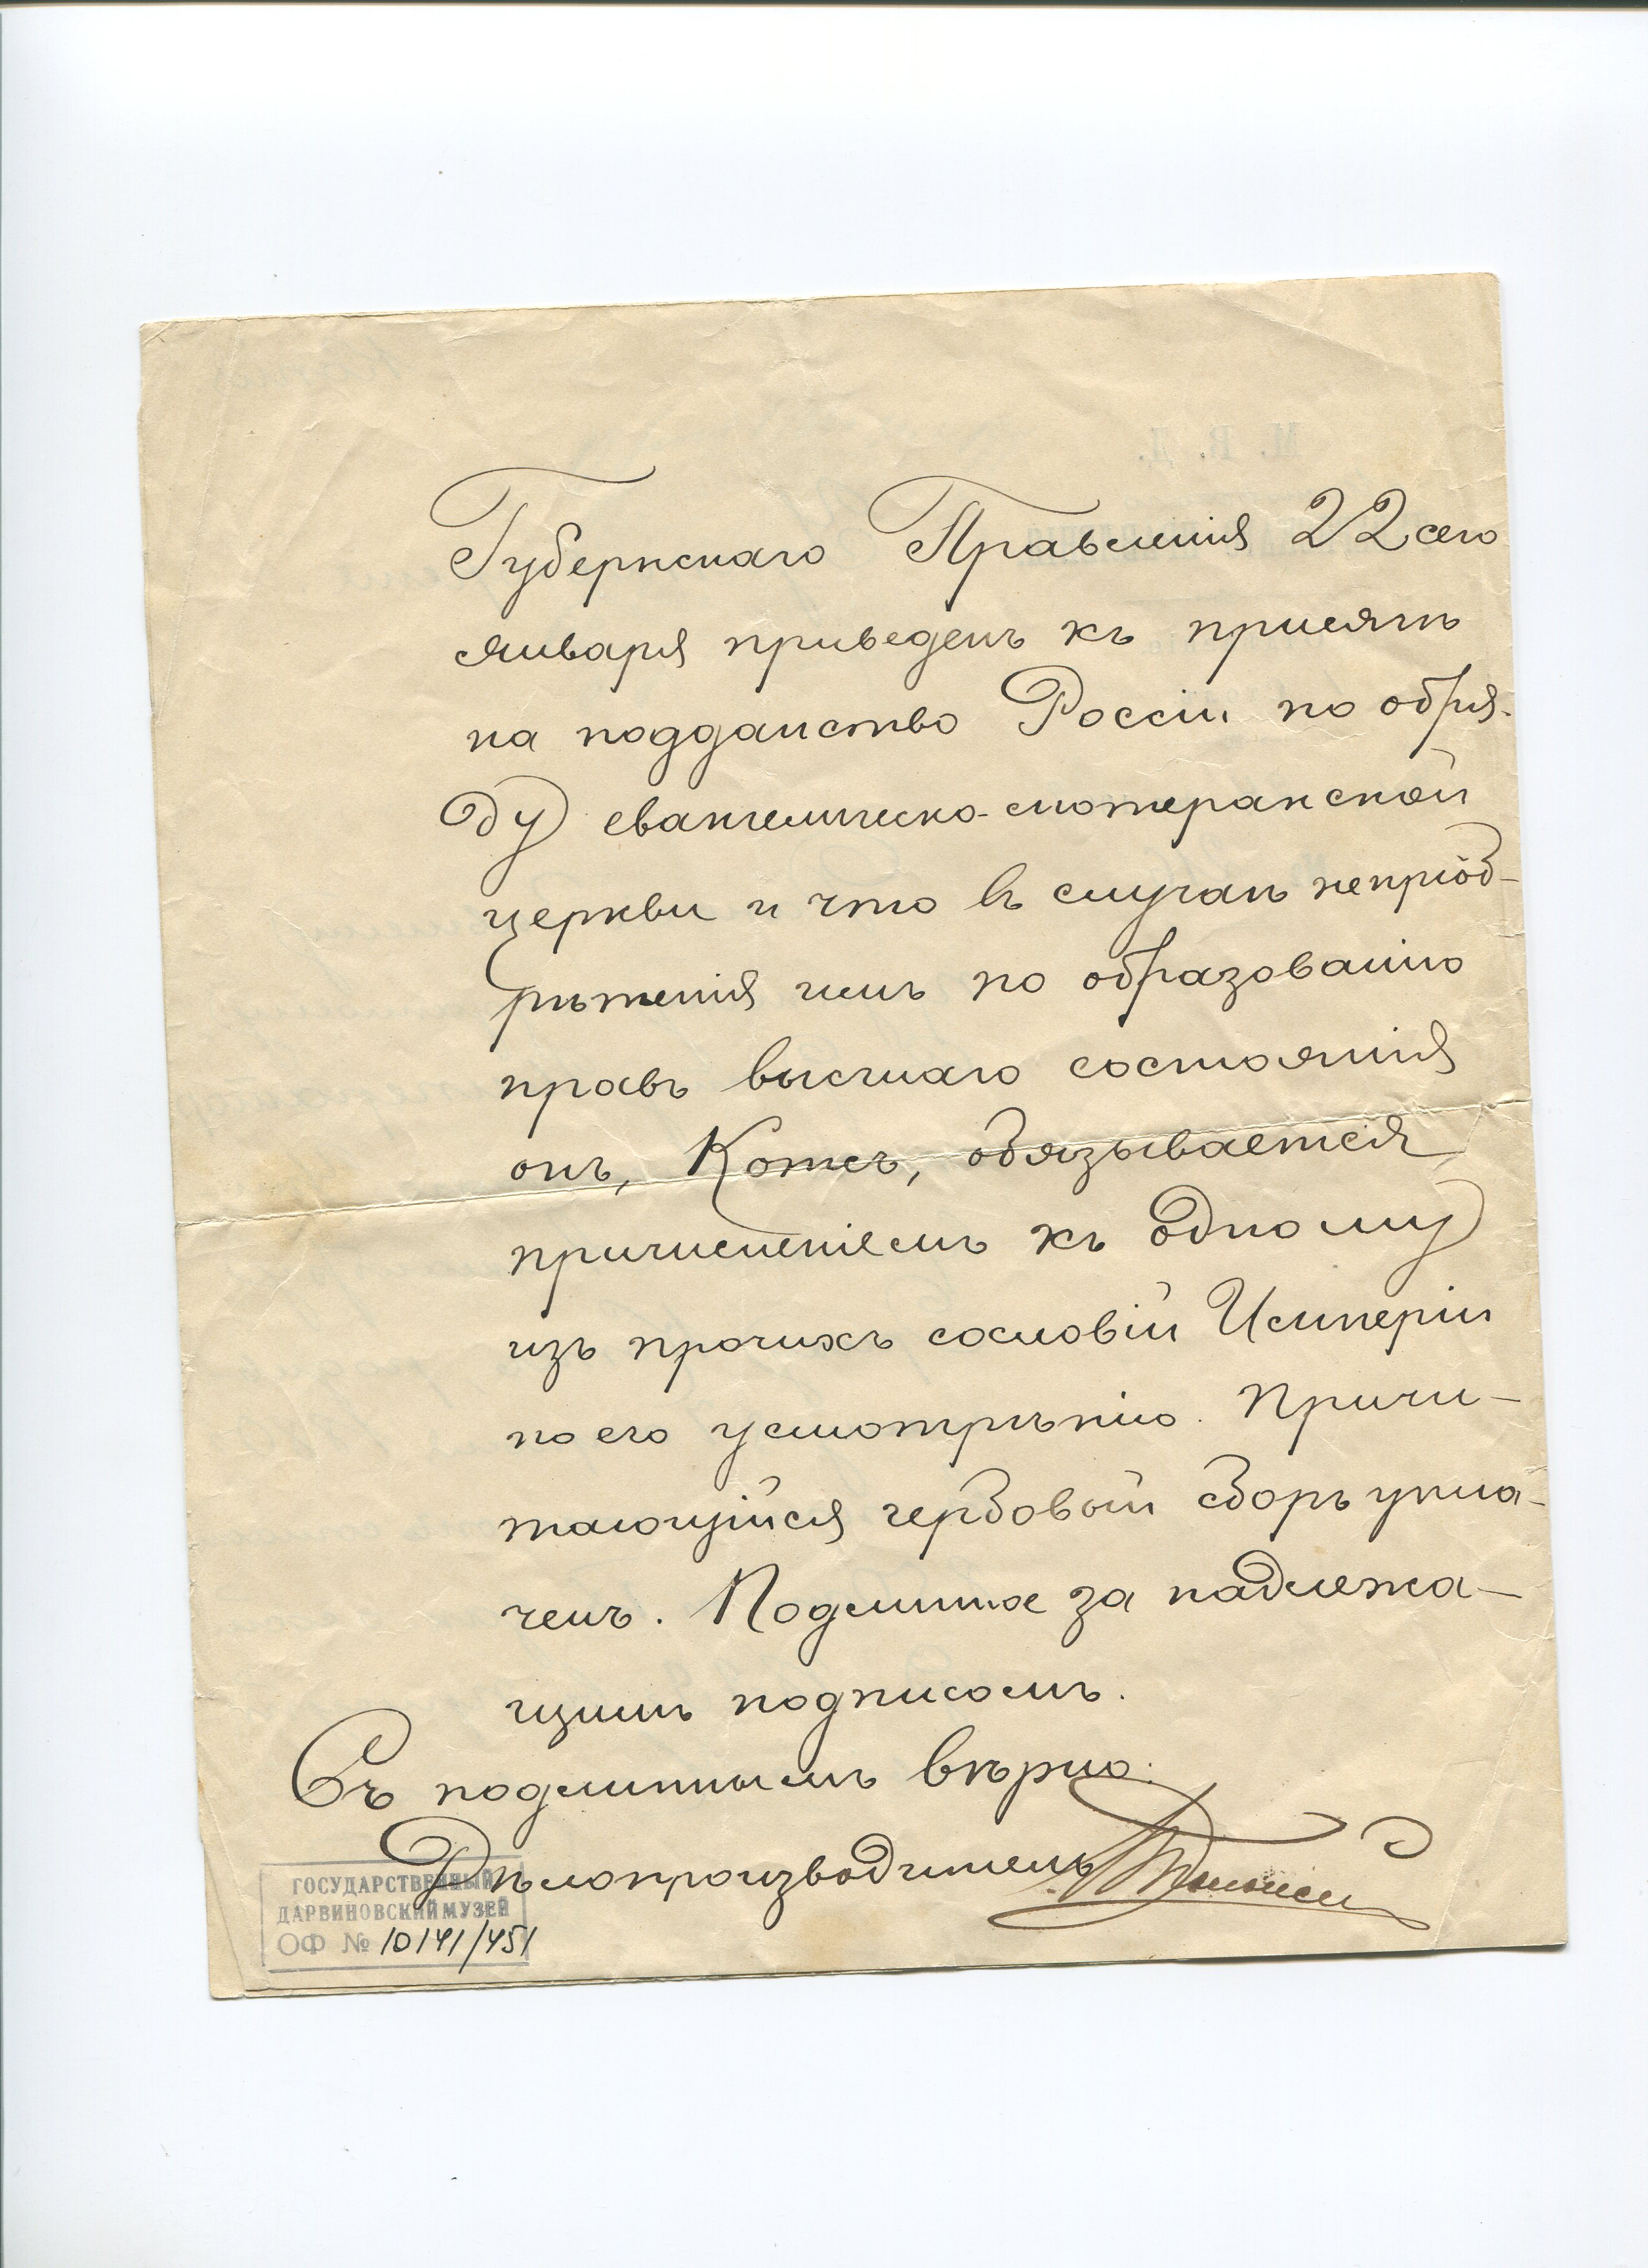 Губернскаго Правленія 22 сего
января приведенъ къ присягѣ
на подданство Россіи по обря-
ду евангелическо-лютеранской
церкви и что въ случаѣ непріоб-
рѣтенія имъ по образованію
правъ высшаго состоянія
онъ, Котсъ, обязывается
причисленіемъ къ одному
изъ прочихъ сословій Имперіи
по его усмотрѣнію. Причи-
тающійся гербовой сборъ упла-
ченъ. Подлинное за надлежа-
щимъ подписомъ.
Съ подлиннымъ вѣрно:
Дѣлопроизводитель
ГОСУДАРСТВЕННЫЙ
ДАРВИНОВСКИЙ МУЗЕЙ
ОФ № 10141/451